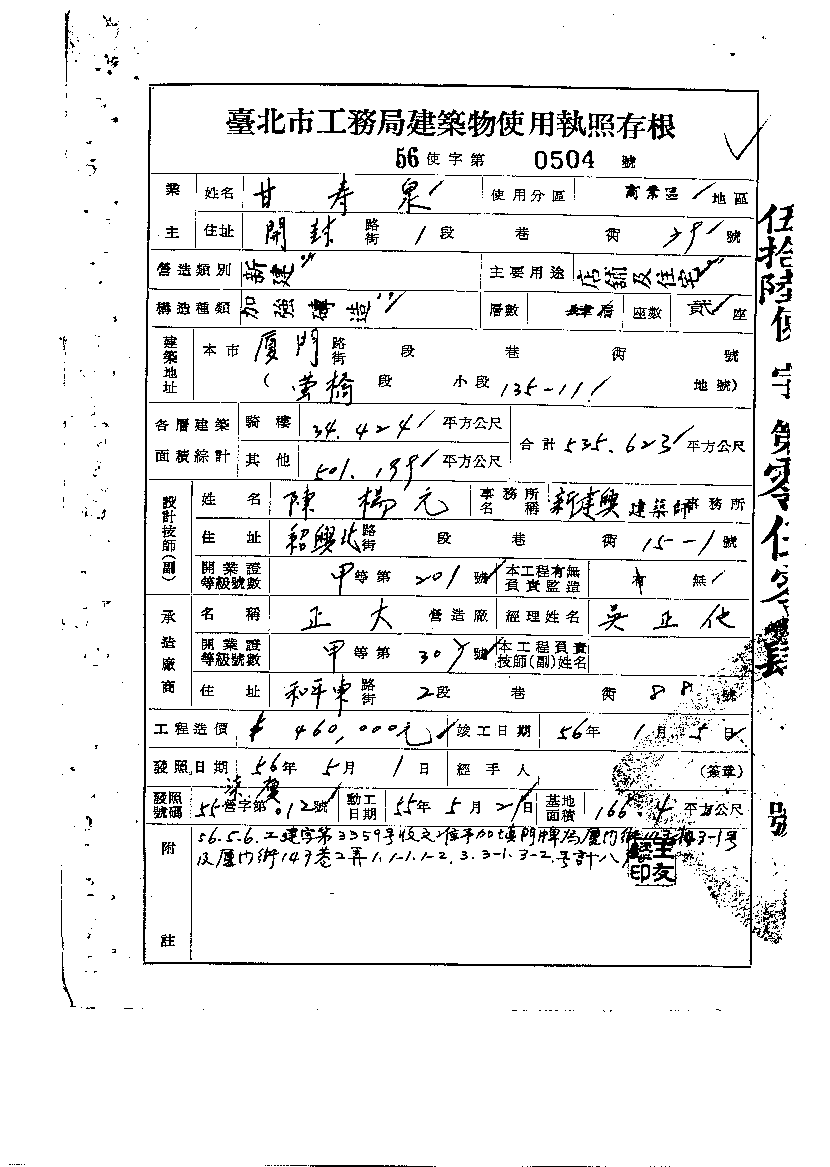 臺北市工務局建築物使用執照存根
56使字第 0504 號
業主 姓名 甘寿泉 使用分區 商業區 地區
住址 開封 路街 1段 巷 衖 39 號
營造類別 新建 主要用途 店舖及住宅
構造種類 加強磚造 層數 肆層 座數 貳座
建築地址 本市 厦門 路街 段 巷 衖 號
(螢橋 段 小段 135-11 地號)
各層建築面積綜計 騎樓 34.424 平方公尺 合計 535.623 平方公尺
其他 501.199 平方公尺
設計技師(副) 姓名 陳楊元 事務所名稱 新建興建築師事務所
住址 紹興北 路街 段 巷 衖 15-1 號
開業證等級號數 甲等第 201 號 本工程有無負責監造 有 無
承造廠商 名稱 正大 營造廠 經理姓名 吳正
開業證等級號數 甲等第 30 號 本工程負責技師(副)姓名
住址 和平東 路街 2段 巷 衖 88 號
工程造價 $ 460,000元 竣工日期 56年 1月 5日
發照日期 56年 5月 1日 經手人 (簽章)
發照號碼 55營字第 012號 動工日期 55年 5月 2日 基地面積 166.4 平方公尺
附註 56.5.6.工建字第3359号收文 加填門牌為厦门街 3-1号
及厦门街147巷2弄1.1-1.1-2.3.3-1.3-2.号計八
王友
印
伍拾陸使字第零伍零肆號